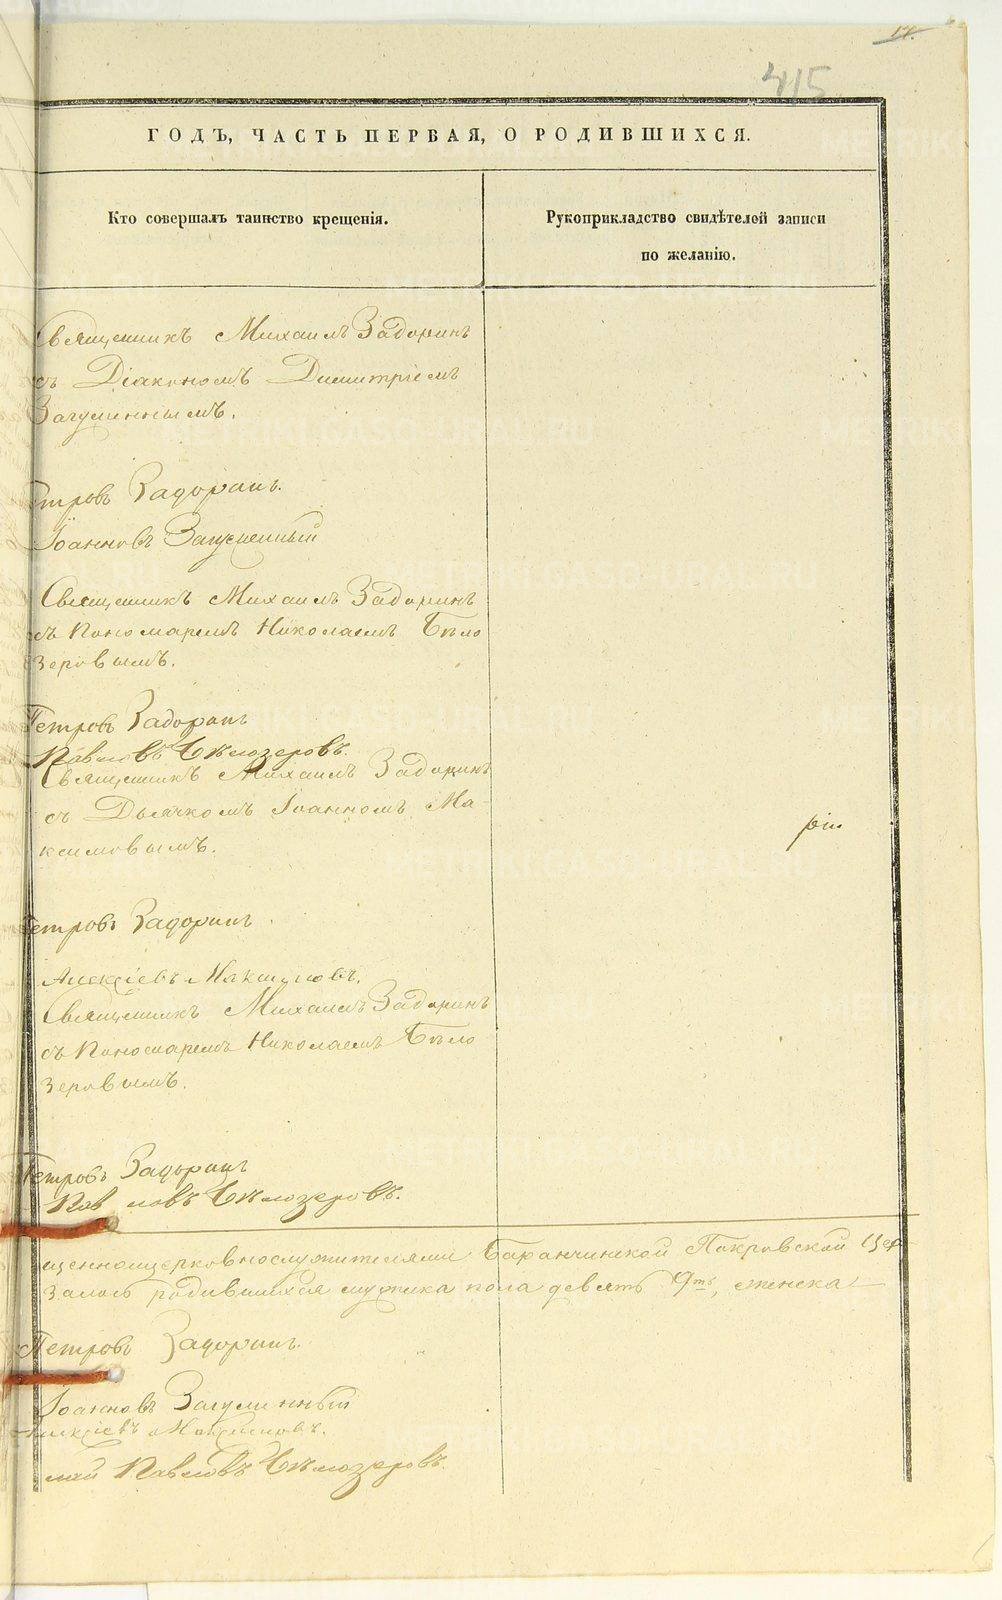 17.
415
ГОДЪ, ЧАСТЬ ПЕРВАЯ, О РОДИВШИХСЯ.
Кто совершалъ таинство крещенія.
Рукоприкладство свидѣтелей записи
по желанію.
Священникъ Михаилъ Задоринъ
съ Діакономъ Димитріемъ
Загуменнымъ.
Петровъ Задоринъ.
Іоанновъ Загуменный
Священникъ Михаилъ Задоринъ
съ Пономаремъ Николаемъ Бѣло
зеровымъ.
Петровъ Задоринъ
Павловъ Бѣлозеровъ.
Священникъ Михаилъ Задоринъ
съ Дьячкомъ Іоанномъ Ма-
ксимовымъ.
Петровъ Задоринъ
Алексіевъ Максимовъ.
Священникъ Михаилъ Задоринъ
съ Пономаремъ Николаемъ Бѣло
зеровымъ.
Петровъ Задоринъ
Павловъ Бѣлозеровъ.
щенноцерковнослужителями Баранчинской Покровской Цер-
залось родившихся мужска пола девять 9ть, женска
Петровъ Задоринъ.
Іоанновъ Загуменный
Алексіевъ Максимовъ.
лай Павловъ Бѣлозеровъ.
METRIKI.GASO-URAL.RU